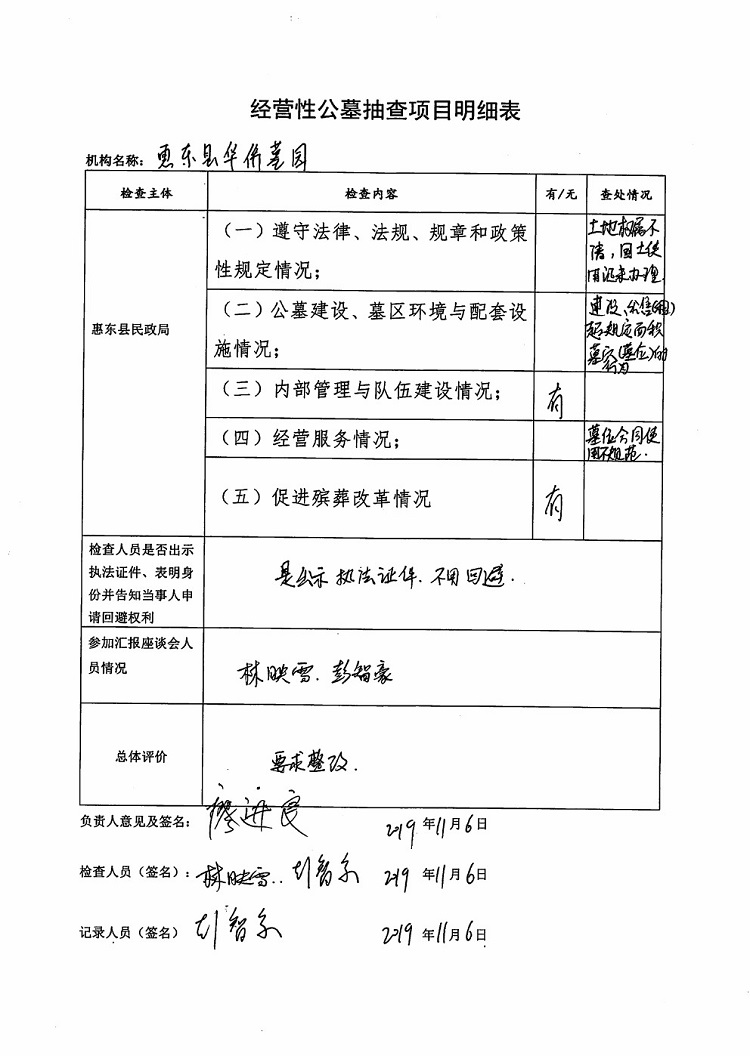 经营性公墓抽查项目明细表
机构名称：惠东县华侨墓园
检查主体 检查内容 有/无 查处情况
惠东县民政局
（一）遵守法律、法规、规章和政策
性规定情况；
土地权属不
清，国土使
用证未办理.
（二）公墓建设、墓区环境与配套设
施情况；
建设、出售(租)
超规定面积
墓穴(墓位)的
行为
（三）内部管理与队伍建设情况； 有
（四）经营服务情况；
墓位合同使
用不规范.
（五）促进殡葬改革情况 有
检查人员是否出示
执法证件、表明身
份并告知当事人申
请回避权利
是出示执法证件.不用回避.
参加汇报座谈会人
员情况
林映雪.彭智豪
总体评价 要求整改.
负责人意见及签名： 廖进良 2019年11月6日
检查人员（签名）：林映雪.. 2019年11月6日
记录人员（签名） 2019年11月6日